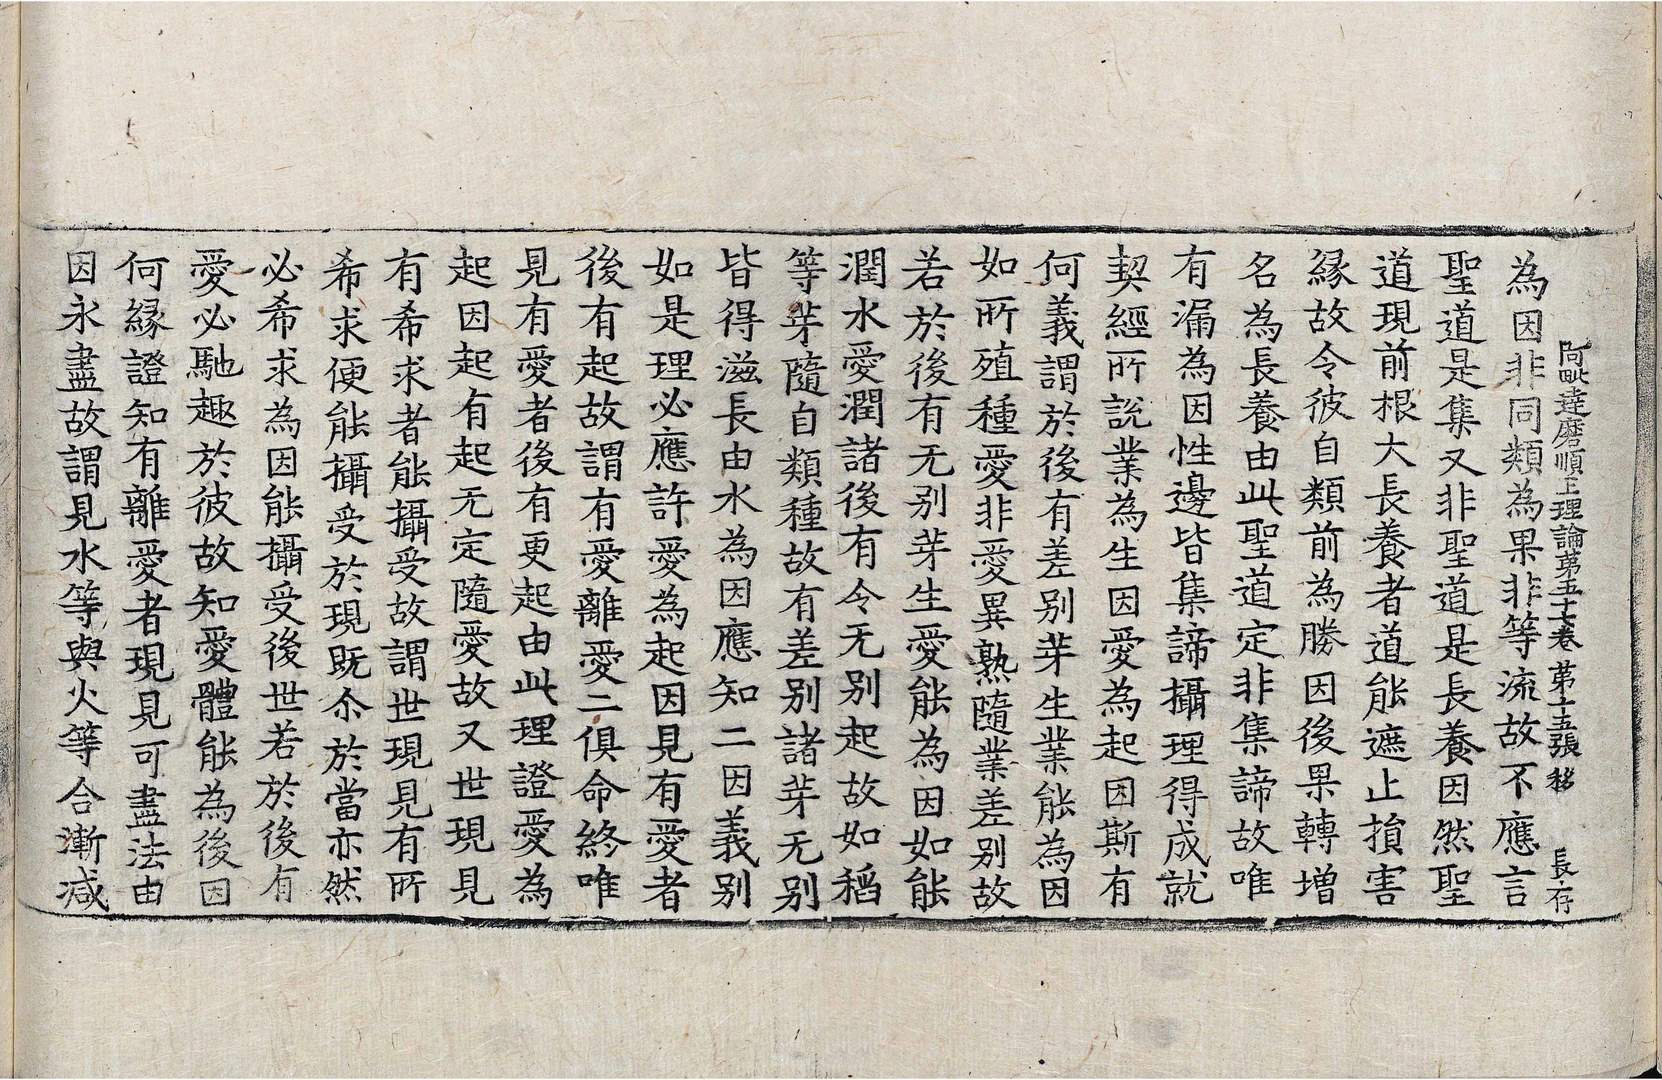 阿毗達磨順正理論第五十七卷 第十五張 移 長存
為因非同類為果非等流故不應言
聖道是集又非聖道是長養因然聖
道現前根大長養者道能遮止損害
緣故令彼自類前為勝因後果轉增
名為長養由此聖道定非集諦故唯
有漏為因性邊皆集諦攝理得成就
契經所說業為生因愛為起因斯有
何義謂於後有差別芽生業能為因
如所殖種愛非愛異熟隨業差別故
若於後有无別芽生愛能為因如能
潤水愛潤諸後有令无別起故如稻
等芽隨自類種故有差別諸芽无別
皆得滋長由水為因應知二因義別
如是理必應許愛為起因見有愛者
後有起故謂有愛離愛二俱命終唯
見有愛者後有更起由此理證愛為
起因起有起无定隨愛故又世現見
有希求者能攝受故謂世現見有所
希求便能攝受於現既尒於當亦然
必希求為因能攝受後世若於後有
愛必馳趣於彼故知愛體能為後因
何緣證知有離愛者現見可盡法由
因永盡故謂見水等與火等合漸减